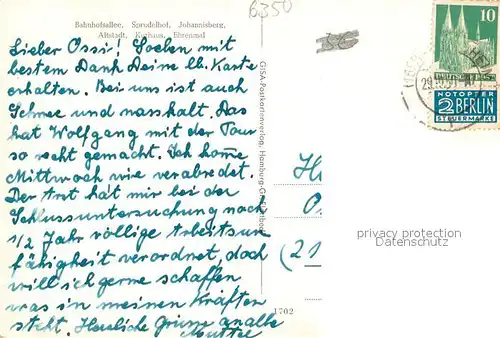 Bahnhofsallee, Sprudelhof, Johannisberg,
Altstadt, Kurhaus, Ehrenmal
6350
Lieber Ossi! Soeben mit
bestem Dank Deine lb. Karte
erhalten. Bei uns ist auch
Schnee und nasskalt. Das
hat Wolfgang mit der Tour
so recht gemacht. Ich komme
Mittwoch wie verabredet.
Der Arzt hat mir bei der
Schlussuntersuchung noch
1/2 Jahr völlige Arbeitsun
fähigkeit verordnet, doch
will ich gerne schaffen
was in meinen Kräften
steht. Herzliche Grüsse an alle
Mutter
GISA-Postkartenverlag, Hamburg-
1702
H
O
(21
10
DEUTSCHE POST
NOTOPFER
2 BERLIN
STEUERMARKE
privacy protection
Datenschutz